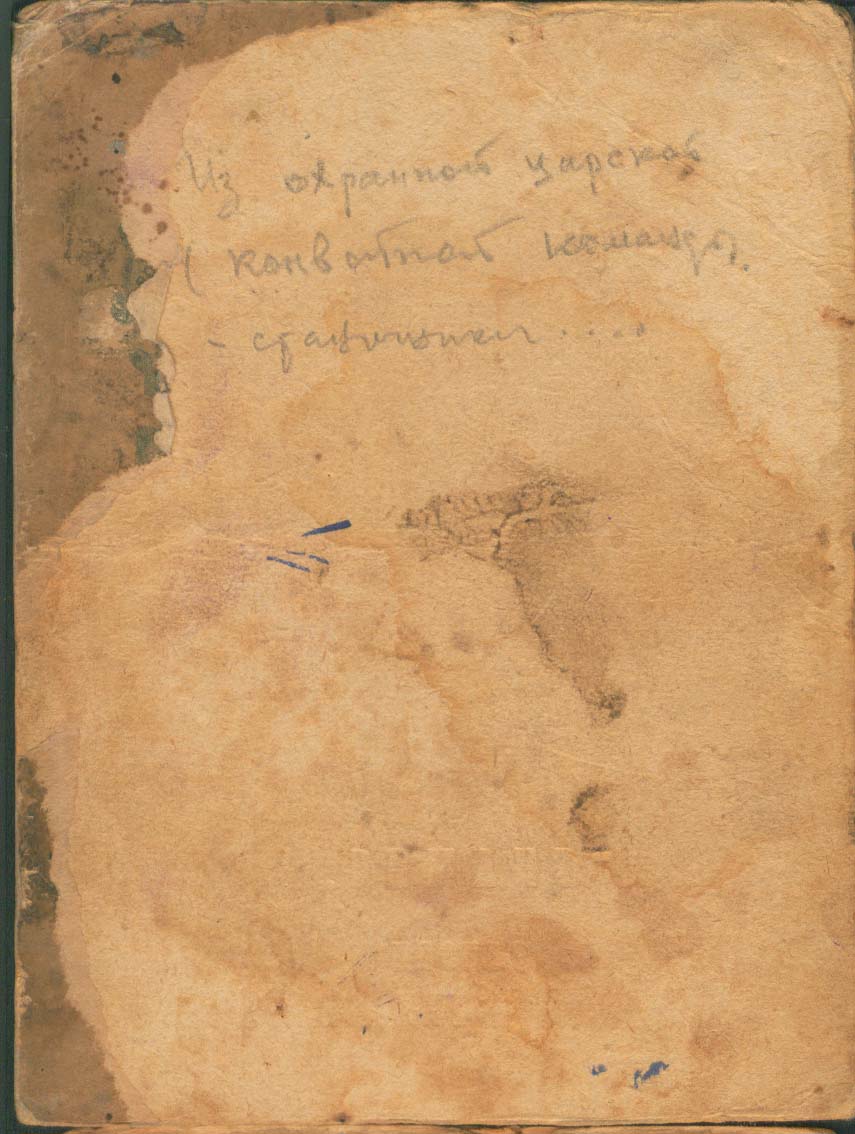 Из охранной царской
( конвойной команды.
- станичники ....